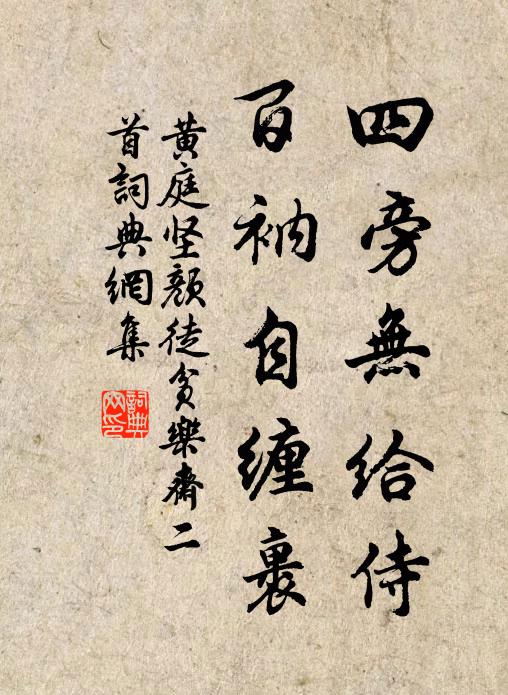 四旁無給侍
百衲自纏裹
黄庭坚顏徒貧樂齋二
首詞典網集
詞典
网印